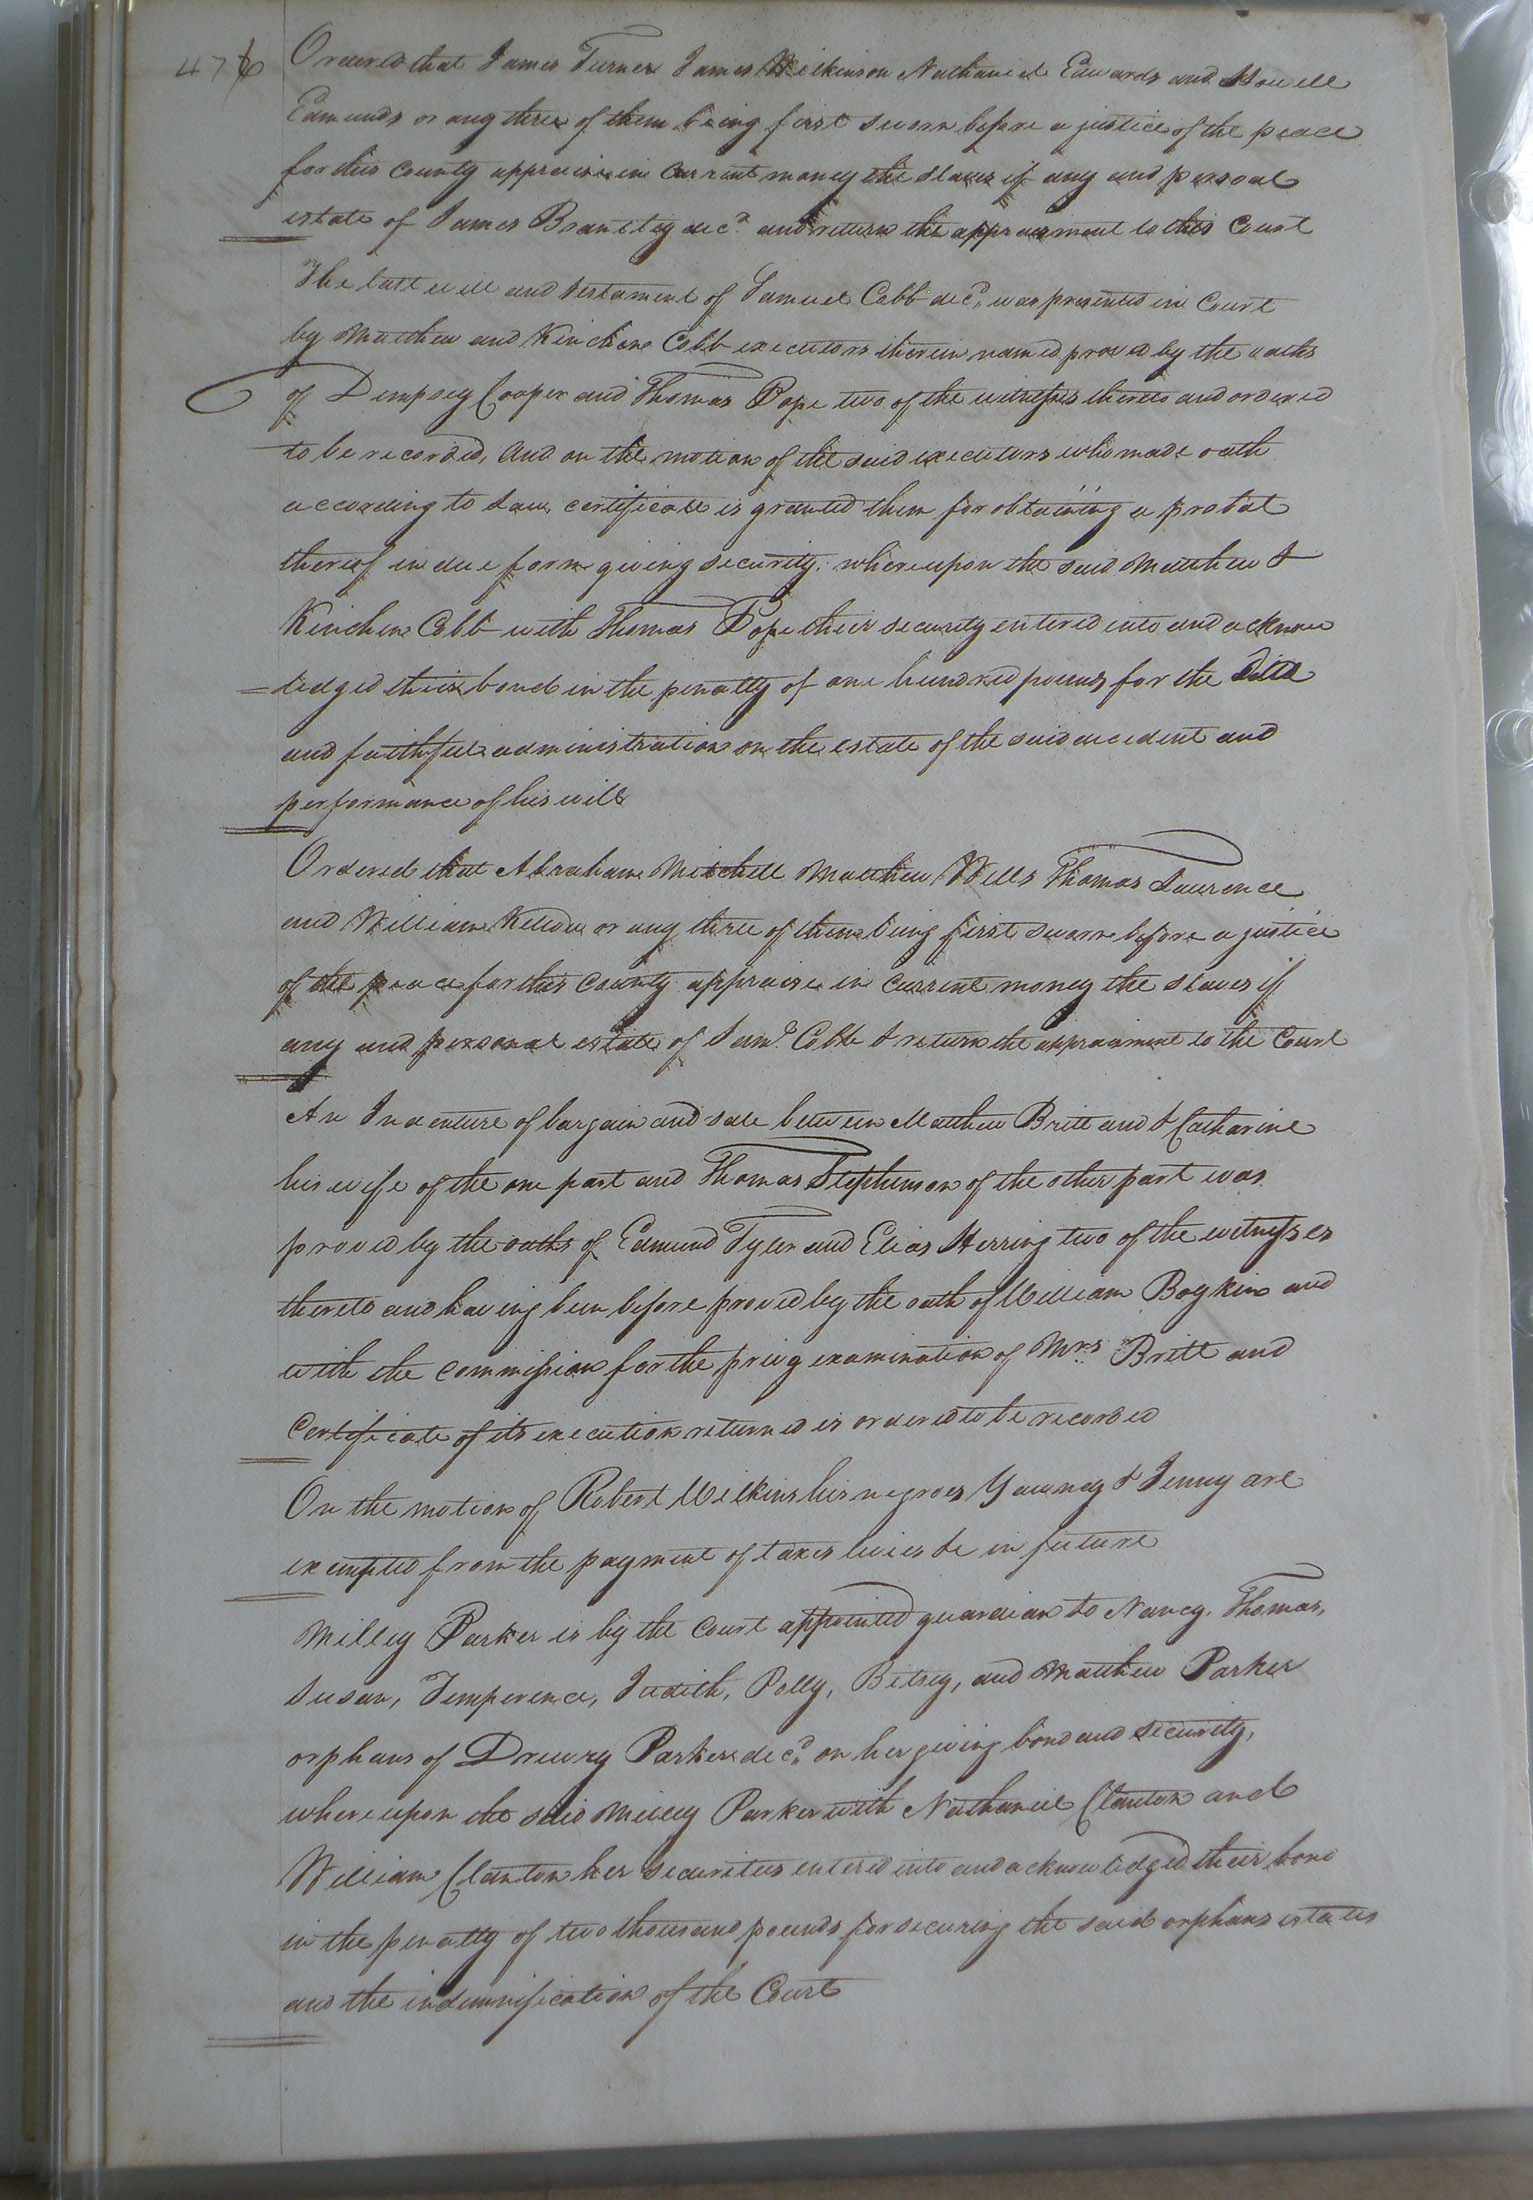 476
Ordered that James Turner James Wilkinson Nathaniel Edwards and Howell
Edmunds or any three of them being first sworn before a justice of the peace
for this county appraise in current money the slaves if any and persoal
estate of James Brantley decd. and return the appraisment to this Court
The last will and testament of Samuel Cobb decd. was presented in Court
by Matthew and Kinchen Cobb executors therein named proved by the oaths
of Dempsey Cooper and Thomas Pope two of the witnesses thereto and ordered
to be recorded, And on the motion of the said executors who made oath
according to Law certificate is granted them for obtaining a probat
thereof in due form giving security: whereupon the said Matthew &
Kinchen Cobb with Thomas Pope their security entered into and acknow
=ledged their bond in the penalty of one hundred pounds for the
and faithful administration on the estate of the said decedent and
performance of his will
Ordered that Abraham Mitchell Matthew Wells Thomas Laurence
and William or any three of them being first sworn before a justice
of the peace for this County appraise in current money the slaves if
any and personal estate of Saml. Cobb & return the appraisment to the Court
An Indenture of bargain and sale between Matthew Britt and & Catharine
his wife of the one part and Thomas Stephenson of the other part was
proved by the oaths of Edmund Tyler and Elias Herring two of the witnesses
thereto and having been before proved by the oath of William Boykin and
with the commission for the privy examination of Mrs. Britt and
certificate of its execution returned is ordered to be recorded
On the motion of Robert Wilkins his negroes & Jenny are
exempted from the payment of taxes levies &c in future
Milley Parker is by the Court appointed guardian to Nancy, Thomas,
Susan, Temperence, Judith, Polly, Betsey, and Matthew Parker
orphans of Drewry Parker decd. on her giving bond and security,
whereupon the said Milley Parker with Nathaniel Clanton and
William Clanton her securities entered into and acknowledged their bond
in the penalty of two thousand pounds for securing the said orphans estates
and the indemnification of the Court